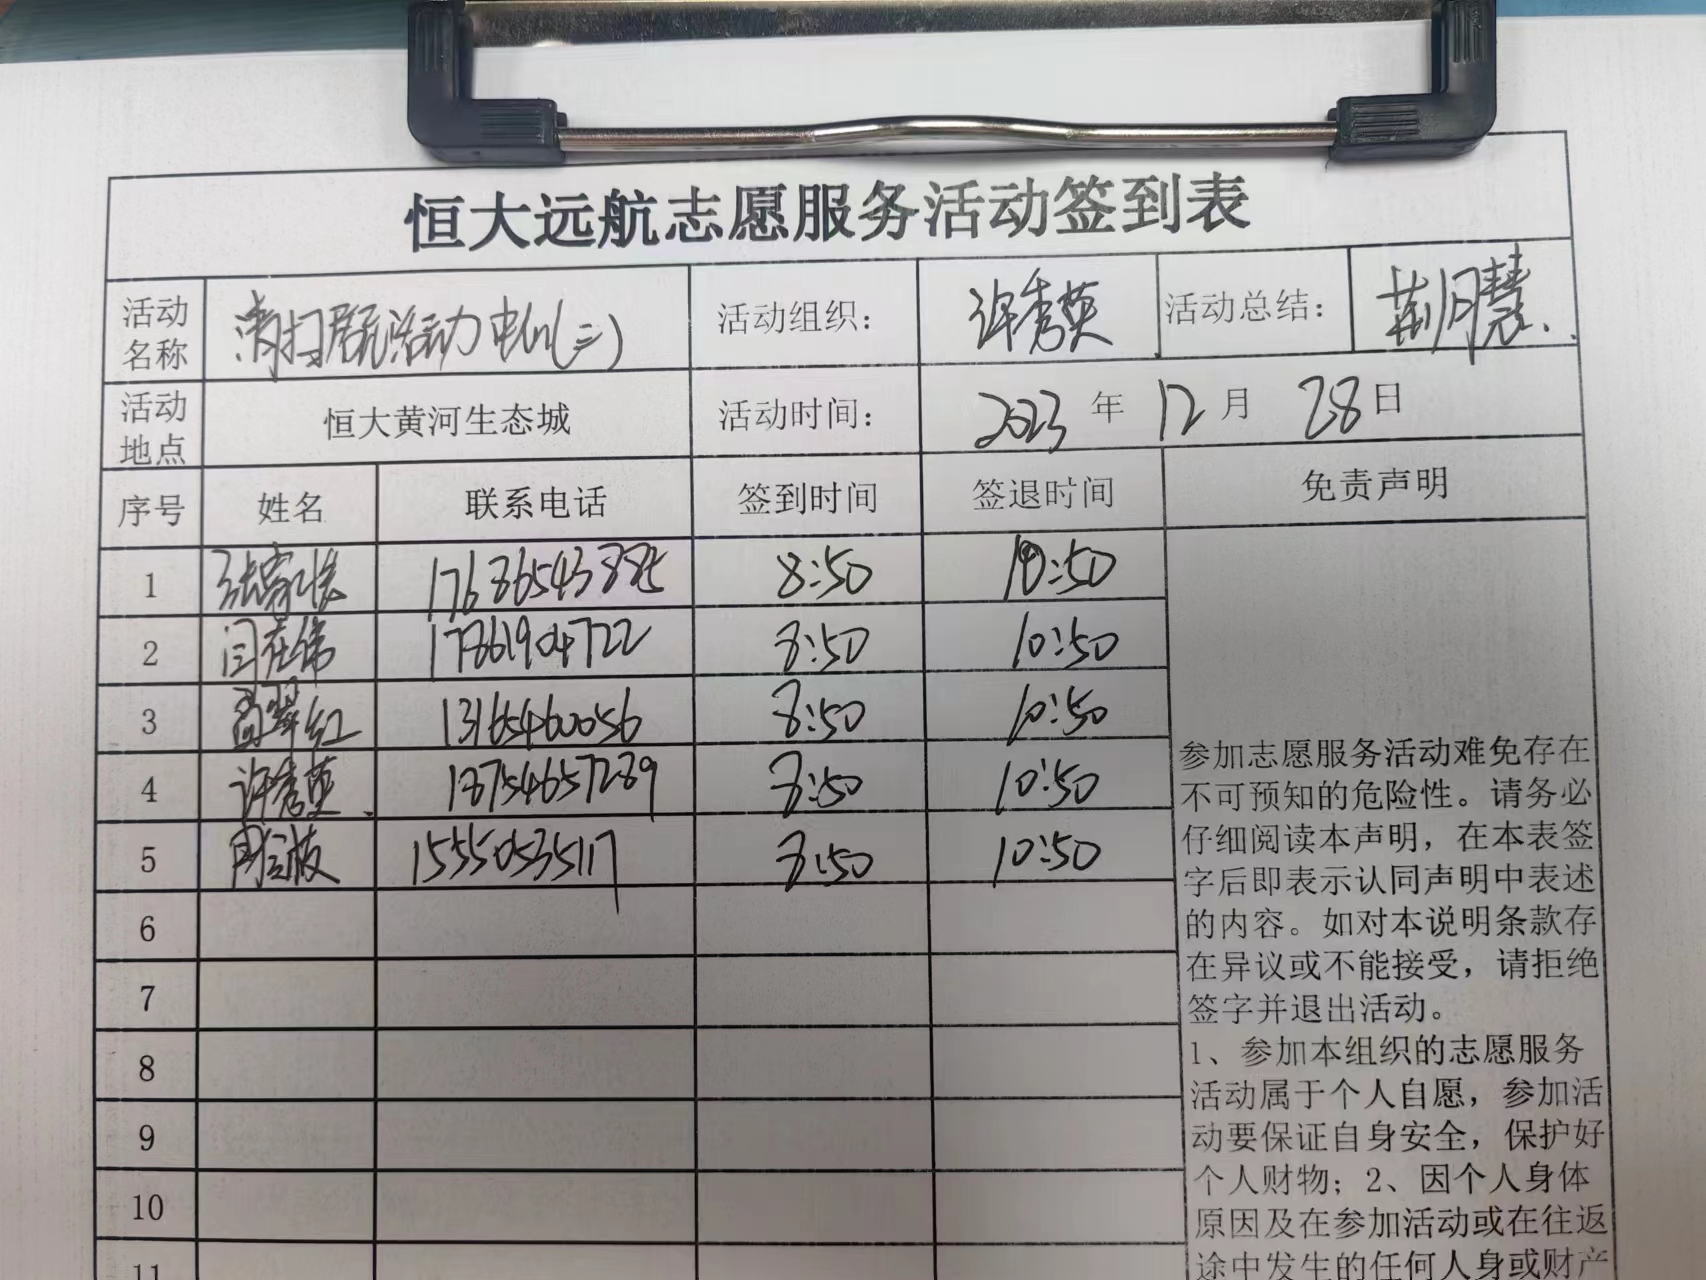 恒大远航志愿服务活动签到表
活动名称 清扫居民活动中心(二) 活动组织: 许秀英 活动总结: 荆月慧
活动地点 恒大黄河生态城 活动时间: 2023年12月28日
序号 姓名 联系电话 签到时间 签退时间 免责声明
1 17686543885 8:50 10:50
2 闫在伟 17861904722 8:50 10:50
3 翠红 13165460056 8:50 10:50
4 许秀英 18754657289 8:50 10:50
5 15550535117 8:50 10:50
6
7
8
9
10
11
参加志愿服务活动难免存在
不可预知的危险性。请务必
仔细阅读本声明，在本表签
字后即表示认同声明中表述
的内容。如对本说明条款存
在异议或不能接受，请拒绝
签字并退出活动。
1、参加本组织的志愿服务
活动属于个人自愿，参加活
动要保证自身安全，保护好
个人财物；2、因个人身体
原因及在参加活动或在往返
途中发生的任何人身或财产